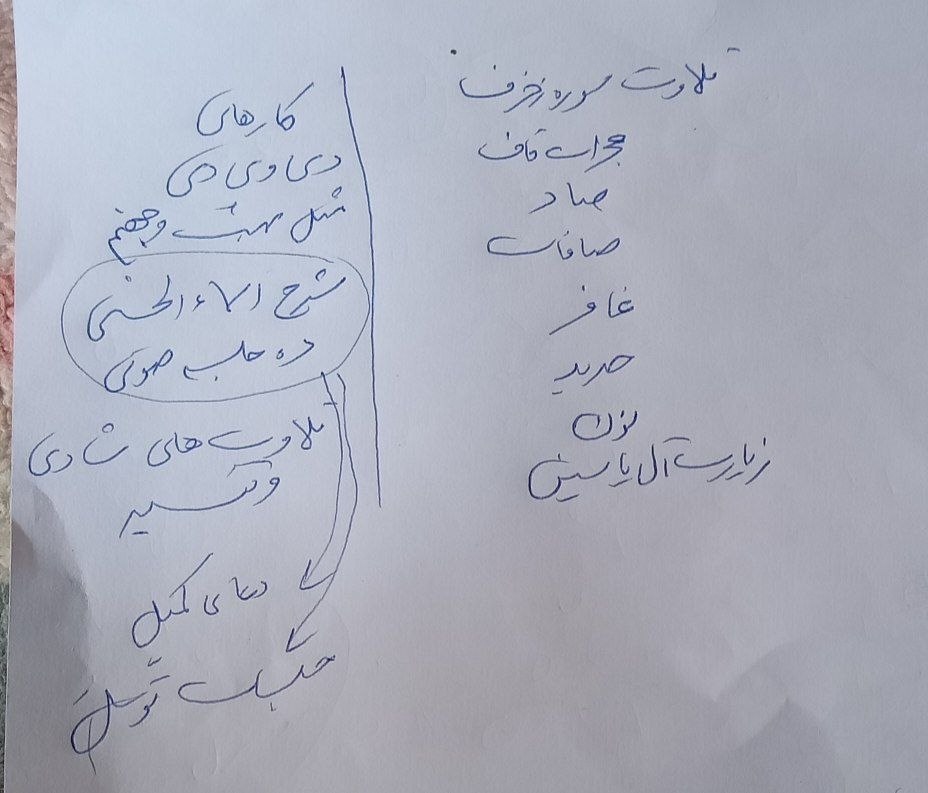 تلاوت سوره زخرف
حجرات قاف
صاد
صافات
غافر
حدید
نون
زیارت آل یاسین
کارهای
دی وی دی
مثل بهشت و جهنم
شرح اسماء الحسنی
ده حلب صوتی
تلاوت های شادی
و تفسیر
دعای کمیل
توسل